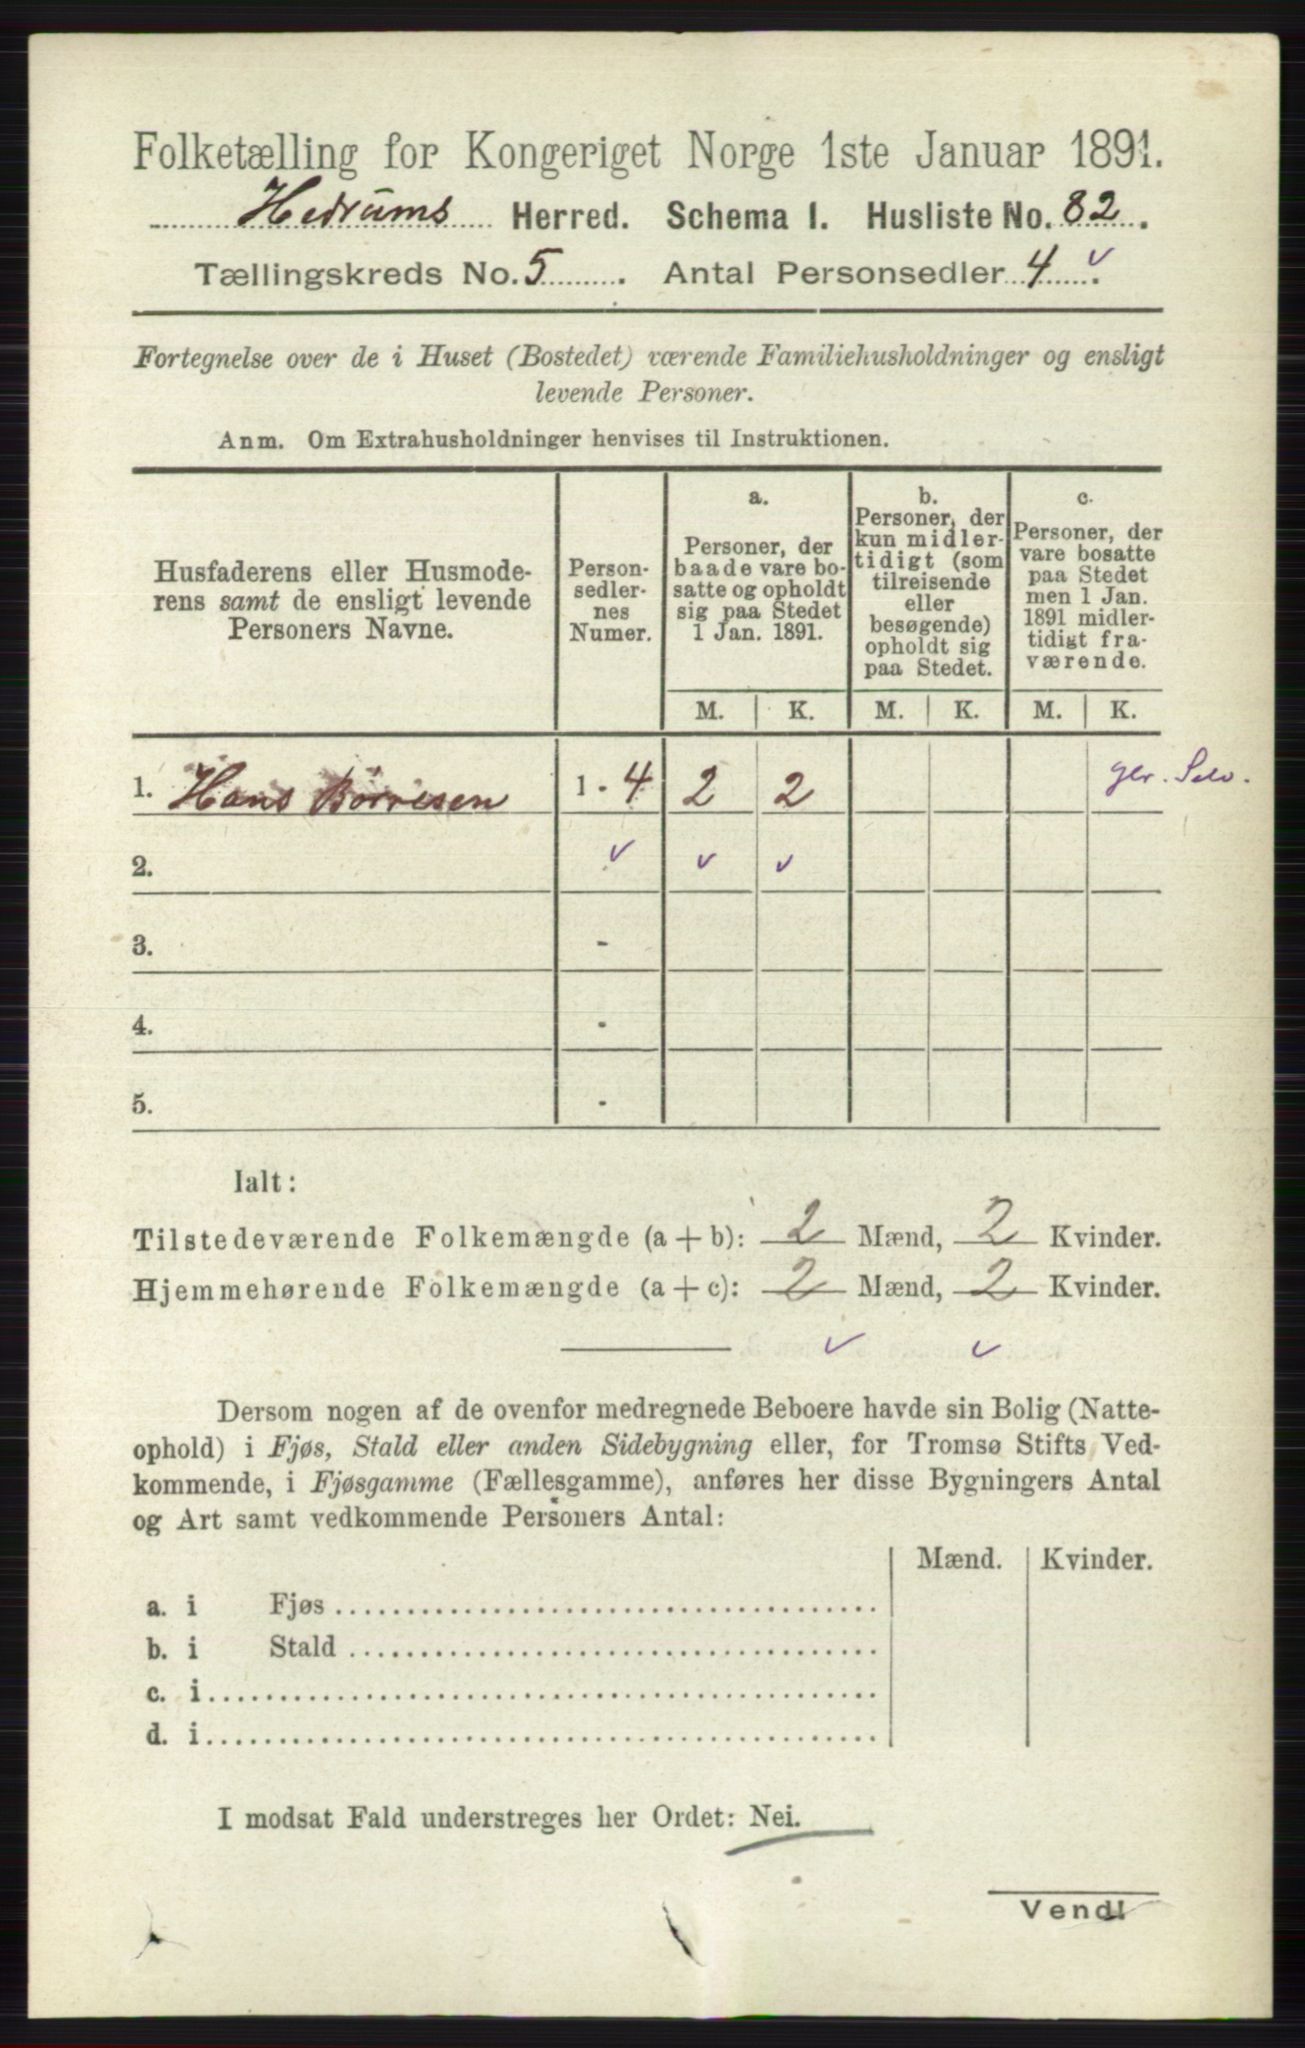 Folketælling for Kongeriget Norge 1ste Januar 1891.
Hedrums Herred. Schema I. Husliste No. 82.
Tællingskreds No. 5. Antal Personsedler 4 v.
Fortegnelse over de i Huset (Bostedet) værende Familiehusholdninger og ensligt
levende Personer.
Anm. Om Extrahusholdninger henvises til Instruktionen.
Husfaderens eller Husmode-
rens samt de ensligt levende
Personers Navne.
Person-
sedler-
nes
Numer.
a.
Personer, der
baade vare bo-
satte og opholdt
sig paa Stedet
1 Jan. 1891.
b.
Personer, der
kun midler-
tidigt (som
tilreisende
eller
besøgende)
opholdt sig
paa Stedet.
c.
Personer, der
vare bosatte
paa Stedet
men 1 Jan.
1891 midler-
tidigt fra-
værende.
M. K. M. K. M. K.
1. Hans Börresen 1 - 4 2 2
2. v v v
3. -
4. -
5. -
Ialt:
Tilstedeværende Folkemængde (a + b): 2 Mænd, 2 Kvinder.
Hjemmehørende Folkemængde (a + c): 2 Mænd, 2 Kvinder.
v v
Dersom nogen af de ovenfor medregnede Beboere havde sin Bolig (Natte-
ophold) i Fjøs, Stald eller anden Sidebygning eller, for Tromsø Stifts Ved-
kommende, i Fjøsgamme (Fællesgamme), anføres her disse Bygningers Antal
og Art samt vedkommende Personers Antal:
Mænd. Kvinder.
a. i Fjøs
b. i Stald
c. i
d. i
I modsat Fald understreges her Ordet: Nei.
Vend!